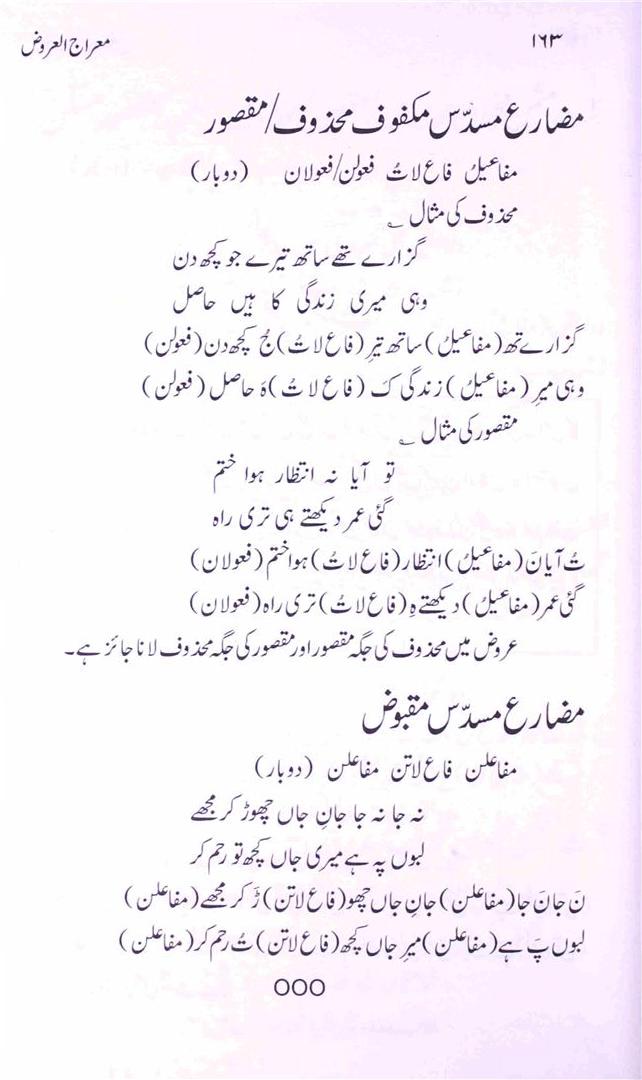 ۱۶۳ معراج العروض
مضارع مسدّس مکفوف محذوف/مقصور
مفاعیلُ فاع لاتُ فعولن/فعولان (دوبار)
محذوف کی مثال ؎
گزارے تھے ساتھ تیرے جو کچھ دن
وہی میری زندگی کا ہیں حاصل
گزارے تھ(مفاعیلُ)ساتھ تیرِ(فاع لاتُ)جُ کچھ دن(فعولن)
وہی میرِ(مفاعیلُ)زندگی کَ(فاع لاتُ)ہَ حاصل(فعولن)
مقصور کی مثال ؎
تو آیا نہ انتظار ہوا ختم
گئی عمر دیکھتے ہی تری راہ
تُ آیا نَ(مفاعیلُ)انتظار(فاع لاتُ)ہوا ختم(فعولان)
گئی عمر(مفاعیلُ)دیکھتے ہِ(فاع لاتُ)تری راہ(فعولان)
عروض میں محذوف کی جگہ مقصور اور مقصور کی جگہ محذوف لانا جائز ہے۔
مضارع مسدّس مقبوض
مفاعلن فاع لاتن مفاعلن (دوبار)
نہ جا نہ جا جانِ جاں چھوڑ کر مجھے
لبوں پہ ہے میری جاں کچھ تو رحم کر
نَ جا نَ جا(مفاعلن)جانِ جاں چھو(فاع لاتن)ڑَ کر مجھے(مفاعلن)
لبوں پَ ہے(مفاعلن)میرِ جاں کچھ(فاع لاتن)تُ رحم کر(مفاعلن)
ooo